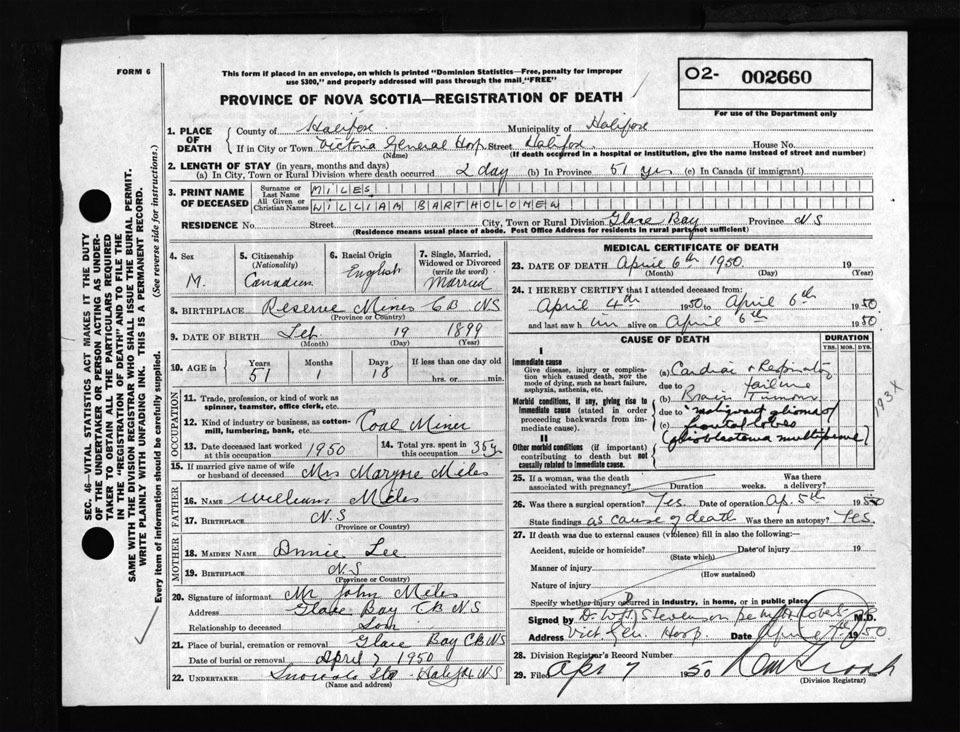 FORM 6
This form if placed in an envelope, on which is printed "Dominion Statistics—Free, penalty for improper
use $300," and properly addressed will pass through the mail "FREE"
O2- 002660
For use of the Department only
PROVINCE OF NOVA SCOTIA—REGISTRATION OF DEATH
1. PLACE OF DEATH
County of Halifax Municipality of Halifax
If in City or Town Victoria General Hosp. Street Halifax House No.
(Name) (If death occurred in a hospital or institution, give the name instead of street and number)
2. LENGTH OF STAY (in years, months and days)
(a) In City, Town or Rural Division where death occurred 2 day (b) In Province 51 yrs (c) In Canada (if immigrant)
3. PRINT NAME OF DECEASED
Surname or Last Name MILES
All Given or Christian Names WILLIAM BARTHOLOMEW
RESIDENCE No. Street City, Town or Rural Division Glace Bay Province NS
(Residence means usual place of abode. Post Office Address for residents in rural parts not sufficient)
4. Sex M.
5. Citizenship (Nationality) Canadian
6. Racial Origin English
7. Single, Married, Widowed or Divorced (write the word) Married
8. BIRTHPLACE Reserve Mines CB NS
(Province or Country)
9. DATE OF BIRTH Feb 19 1899
(Month) (Day) (Year)
10. AGE in Years 51 Months 1 Days 18 If less than one day old hrs. or min.
OCCUPATION
11. Trade, profession, or kind of work as spinner, teamster, office clerk, etc.
12. Kind of industry or business, as cotton-mill, lumbering, bank, etc. Coal Miner
13. Date deceased last worked at this occupation 1950
14. Total yrs. spent in this occupation 35 yrs
15. If married give name of wife or husband of deceased Mrs Marjorie Miles
FATHER
16. NAME William Miles
17. BIRTHPLACE N.S
(Province or Country)
MOTHER
18. MAIDEN NAME Annie Lee
19. BIRTHPLACE N.S
(Province or Country)
20. Signature of informant Mr John Miles
Address Glace Bay CB NS
Relationship to deceased Son
21. Place of burial, cremation or removal Glace Bay CB NS
Date of burial or removal April 7 1950
22. UNDERTAKER Snows Halifax NS
(Name and address)
MEDICAL CERTIFICATE OF DEATH
23. DATE OF DEATH April 6th 1950 19
(Month) (Day) (Year)
24. I HEREBY CERTIFY that I attended deceased from:
April 4th 1950 to April 6th 1950
and last saw him alive on April 6th 1950.
CAUSE OF DEATH
DURATION
YRS. MOS. DYS.
I
Immediate cause
Give disease, injury or complication which caused death, not the mode of dying, such as heart failure, asphyxia, asthenia, etc.
(a) Cardiac & Respiratory
due to failure
Morbid conditions, if any, giving rise to immediate cause (stated in order proceeding backwards from immediate cause).
(b) Brain Tumour
due to malignant glioma of
(c) frontal lobes
(glioblastoma multiforme)
II
Other morbid conditions (if important) contributing to death but not causally related to immediate cause.
25. If a woman, was the death associated with pregnancy? Duration weeks. Was there a delivery?
26. Was there a surgical operation? Yes. Date of operation Ap. 5th 1950
State findings as cause of death Was there an autopsy? Yes.
27. If death was due to external causes (violence) fill in also the following:—
Accident, suicide or homicide? Date of injury 19
(State which)
Manner of injury
(How sustained)
Nature of injury
Specify whether injury occurred in industry, in home, or in public place
Signed by Dr. W.D. Stevenson per M.D.
Address Vict Gen Hosp. Date April 7th 1950
28. Division Registrar's Record Number
29. Filed Apr 7 1950
(Division Registrar)
SEC. 46—VITAL STATISTICS ACT MAKES IT THE DUTY
OF THE UNDERTAKER OR PERSON ACTING AS UNDER-
TAKER TO OBTAIN ALL THE PARTICULARS REQUIRED
IN THE "REGISTRATION OF DEATH" AND TO FILE THE
SAME WITH THE DIVISION REGISTRAR WHO SHALL ISSUE THE BURIAL PERMIT.
WRITE PLAINLY WITH UNFADING INK. THIS IS A PERMANENT RECORD.
Every item of information should be carefully supplied. (See reverse side for instructions.)